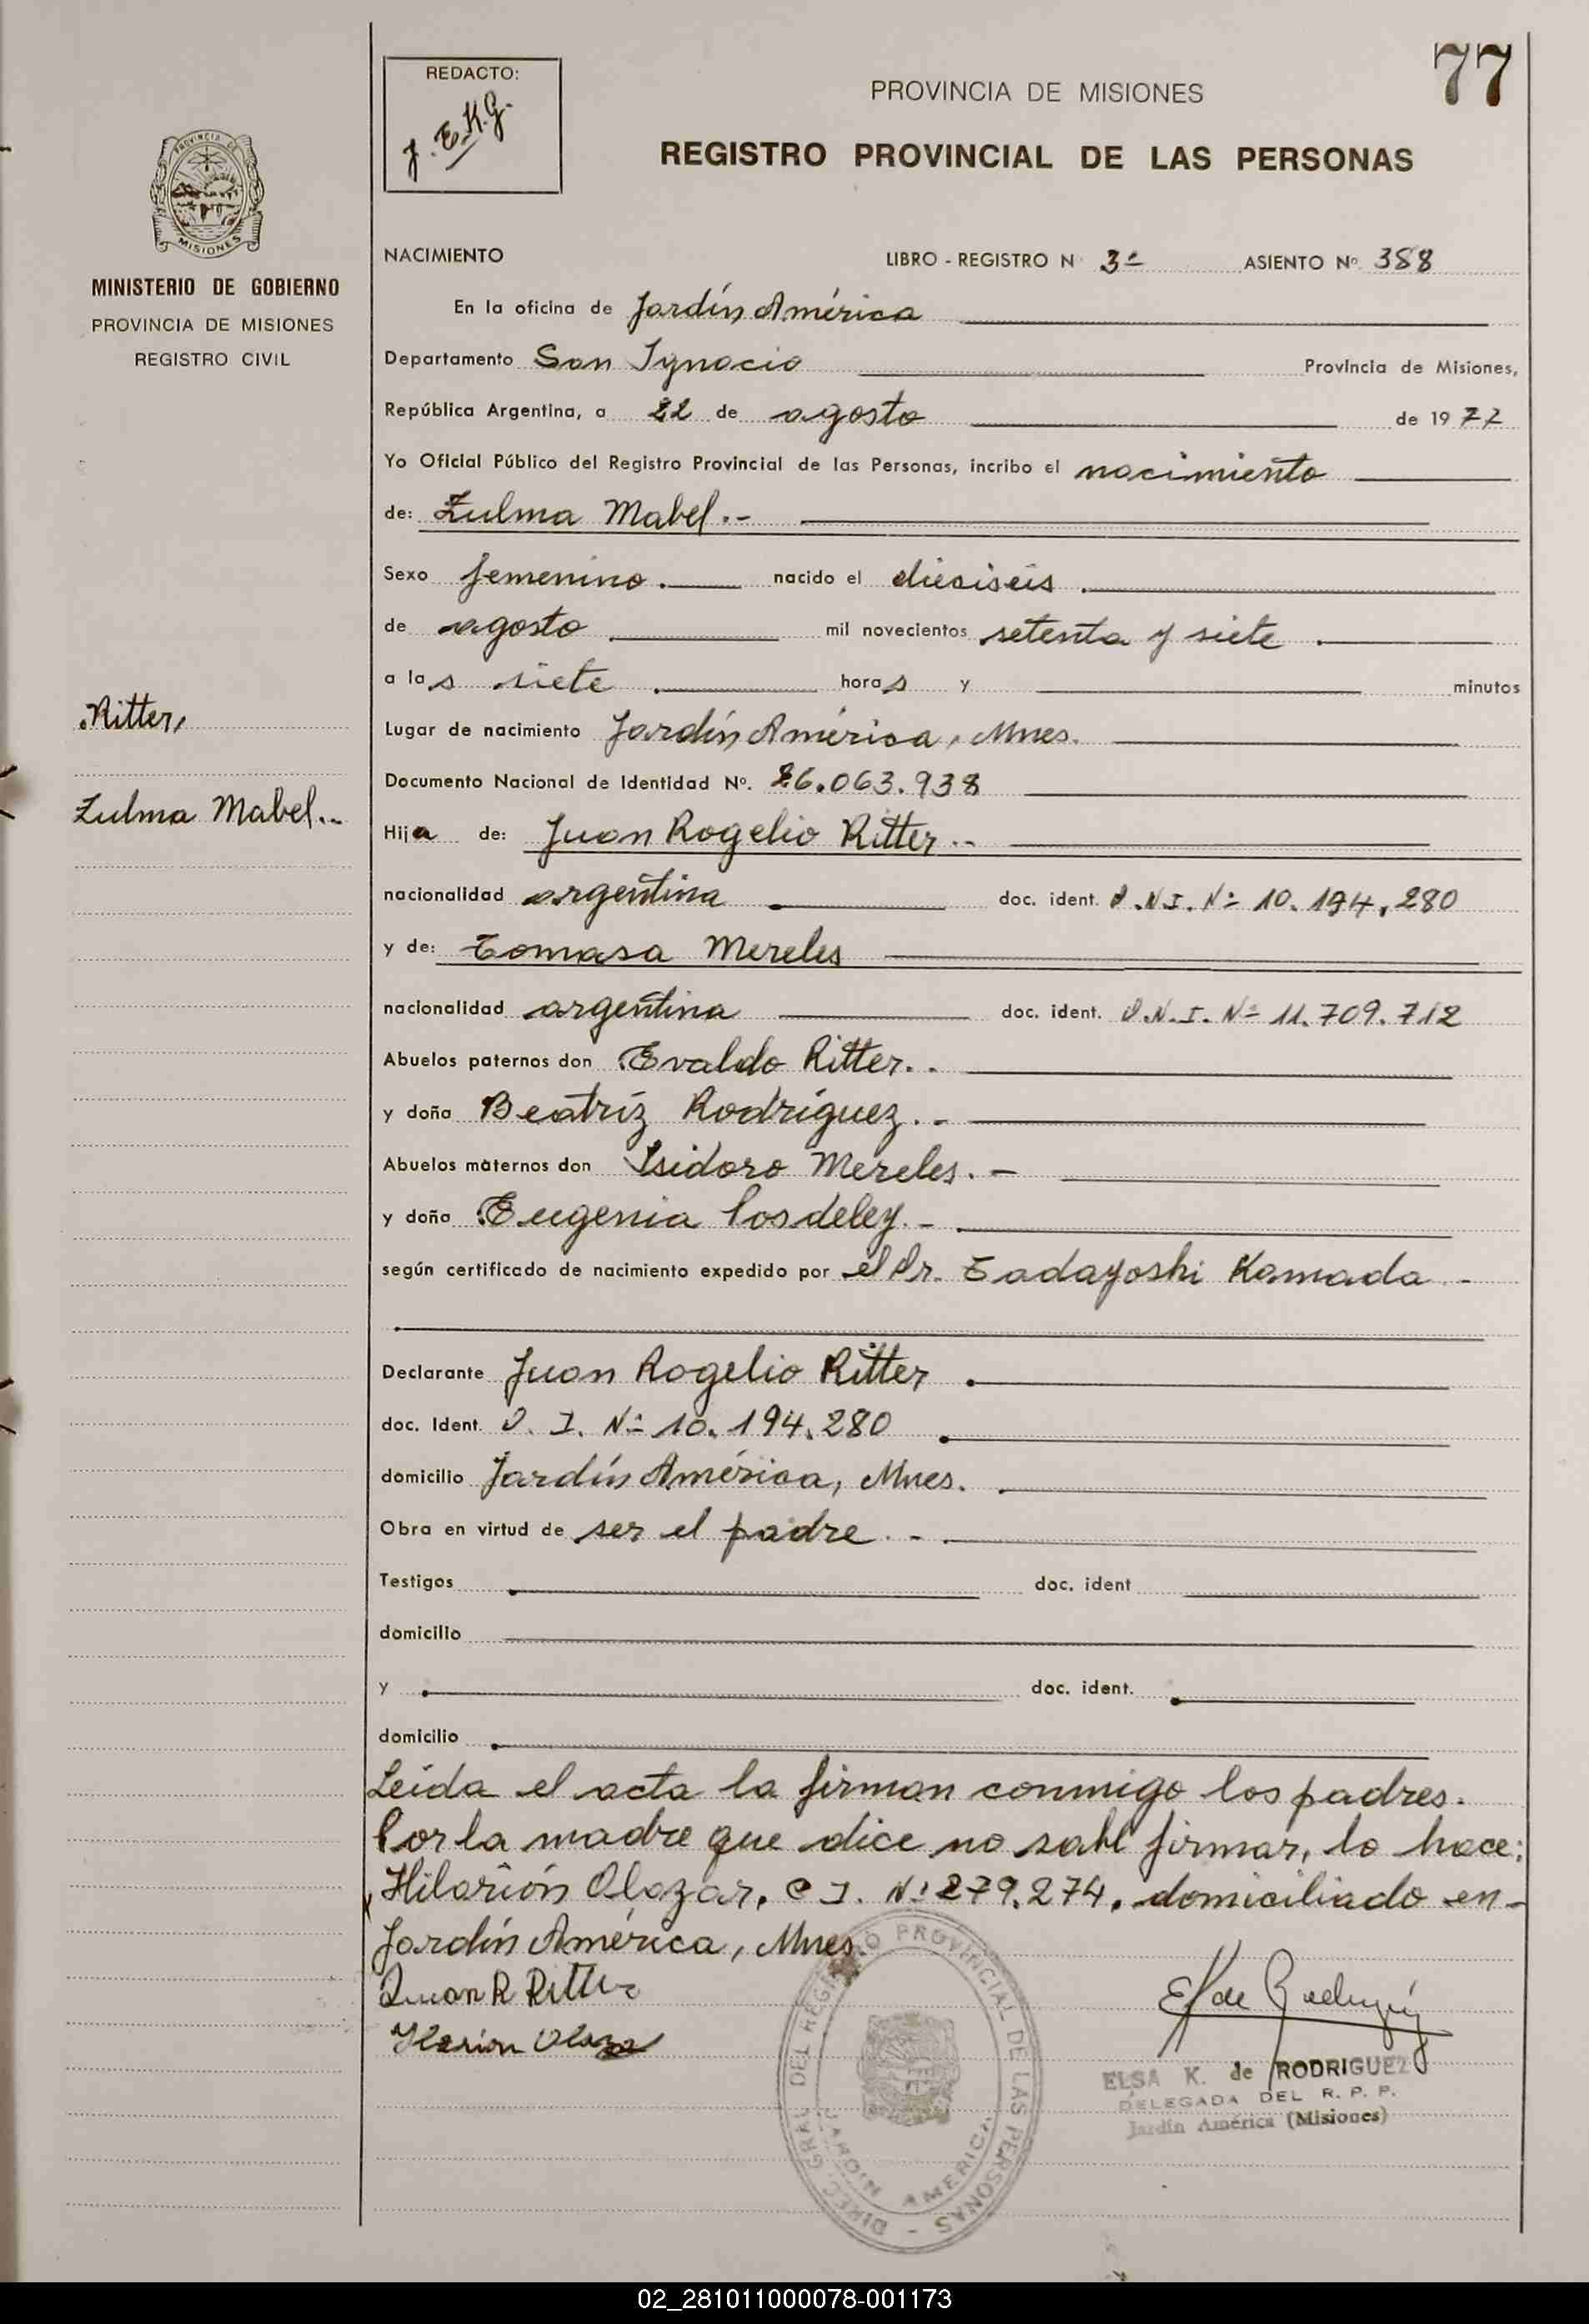 77
REDACTO:
J. E. K. G.
PROVINCIA DE MISIONES
REGISTRO PROVINCIAL DE LAS PERSONAS
PROVINCIA DE
MISIONES
MINISTERIO DE GOBIERNO
PROVINCIA DE MISIONES
REGISTRO CIVIL
NACIMIENTO LIBRO - REGISTRO N 3º ASIENTO Nº 388
En la oficina de Jardín América
Departamento San Ignacio Provincia de Misiones,
República Argentina, a 22 de agosto de 1977
Yo Oficial Público del Registro Provincial de las Personas, incribo el nacimiento
de: Zulma Mabel.-
Sexo femenino. nacido el dieciseis.
de agosto mil novecientos setenta y siete.
a las siete. horas y minutos
Ritter,
Zulma Mabel.-
Lugar de nacimiento Jardín América, Mnes.
Documento Nacional de Identidad Nº. 26.063.938
Hija de: Juan Rogelio Ritter.-
nacionalidad argentina doc. ident. D.N.I. Nº 10.194.280
y de: Tomasa Mereles
nacionalidad argentina doc. ident. D.N.I. Nº 11.709.712
Abuelos paternos don Evaldo Ritter..
y doña Beatríz Rodríguez.-
Abuelos maternos don Isidoro Mereles.-
y doña Eugenia Posdeley.-
según certificado de nacimiento expedido por el Dr. Tadayoshi Kamada -
Declarante Juan Rogelio Ritter.
doc. Ident. D. I. Nº 10.194.280
domicilio Jardín América, Mnes.
Obra en virtud de ser el padre.-
Testigos doc. ident
domicilio
y doc. ident.
domicilio
Leída el acta la firman conmigo los padres.
Por la madre que dice no sabe firmar, lo hace:
Hilarión Olazar, C I. Nº 279.274, domiciliado en-
Jardín América, Mnes.
Juan R Ritter
Ilarion Olazar
DIREC. GRAL DEL REGISTRO PROVINCIAL DE LAS PERSONAS -
JARDIN AMERICA
E K de Rodriguez
ELSA K. de RODRIGUEZ
DELEGADA DEL R. P. P.
Jardín América (Misiones)
02_281011000078-001173